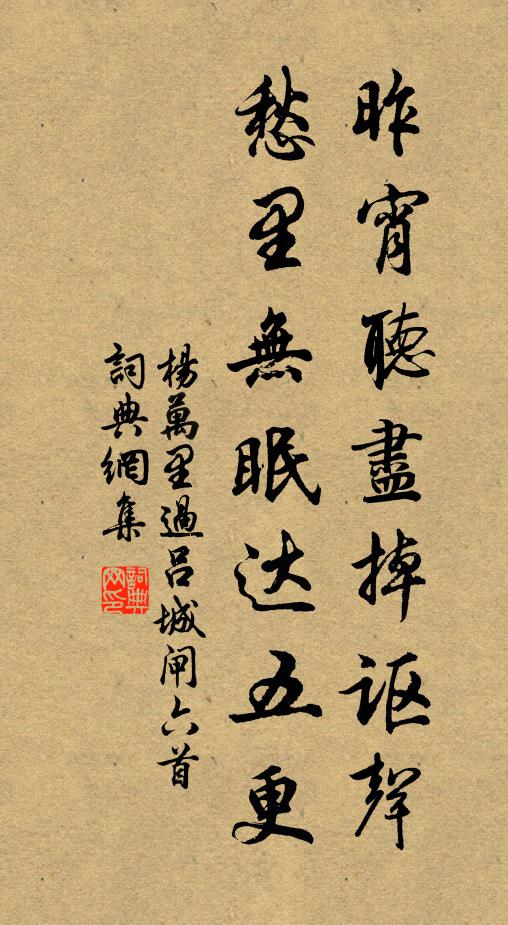 昨宵聽盡掉讴聲
愁里無眠达五更
楊萬里過吕城闸六首
詞典網集
詞典网印